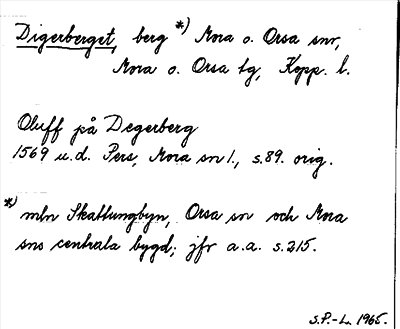 Digerberget, berg *) Mora o. Orsa snr,
Mora o. Orsa tg, Kopp. l.
Oluff på Degerberg
1569 u.d. Pers, Mora sn 1., s.89. orig.
*) mln Skattungbyn, Orsa sn och Mora
sns centrala bygd; jfr a.a. s.215.
S.P.-L. 1965.